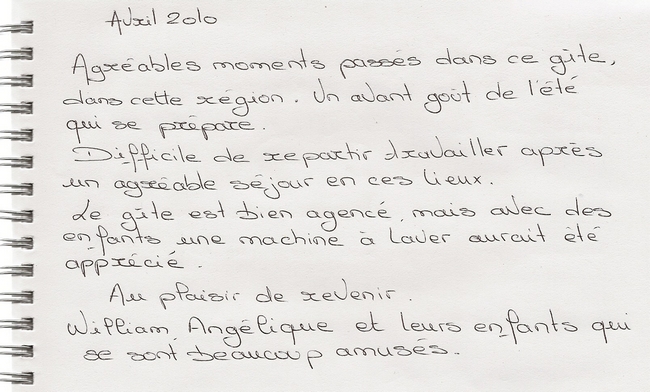 Avril 2010
Agréables moments passés dans ce gîte,
dans cette région. Un avant goût de l'été
qui se prépare.
Difficile de repartir travailler après
un agréable séjour en ces lieux.
Le gîte est bien agencé, mais avec des
enfants une machine à laver aurait été
apprécié.
Au plaisir de revenir.
William, Angélique et leurs enfants qui
se sont beaucoup amusés.